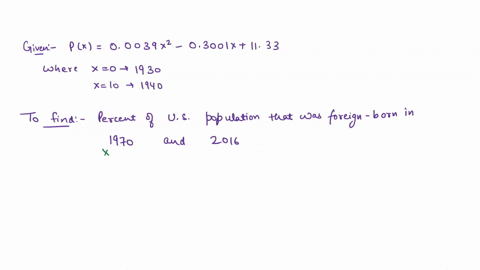 Given:- P(x) = 0.0039x² - 0.3001x + 11.33
where x=0 → 1930
x=10 → 1940
To find:- Percent of U.S. population that was foreign-born in
1970 and 2016
x